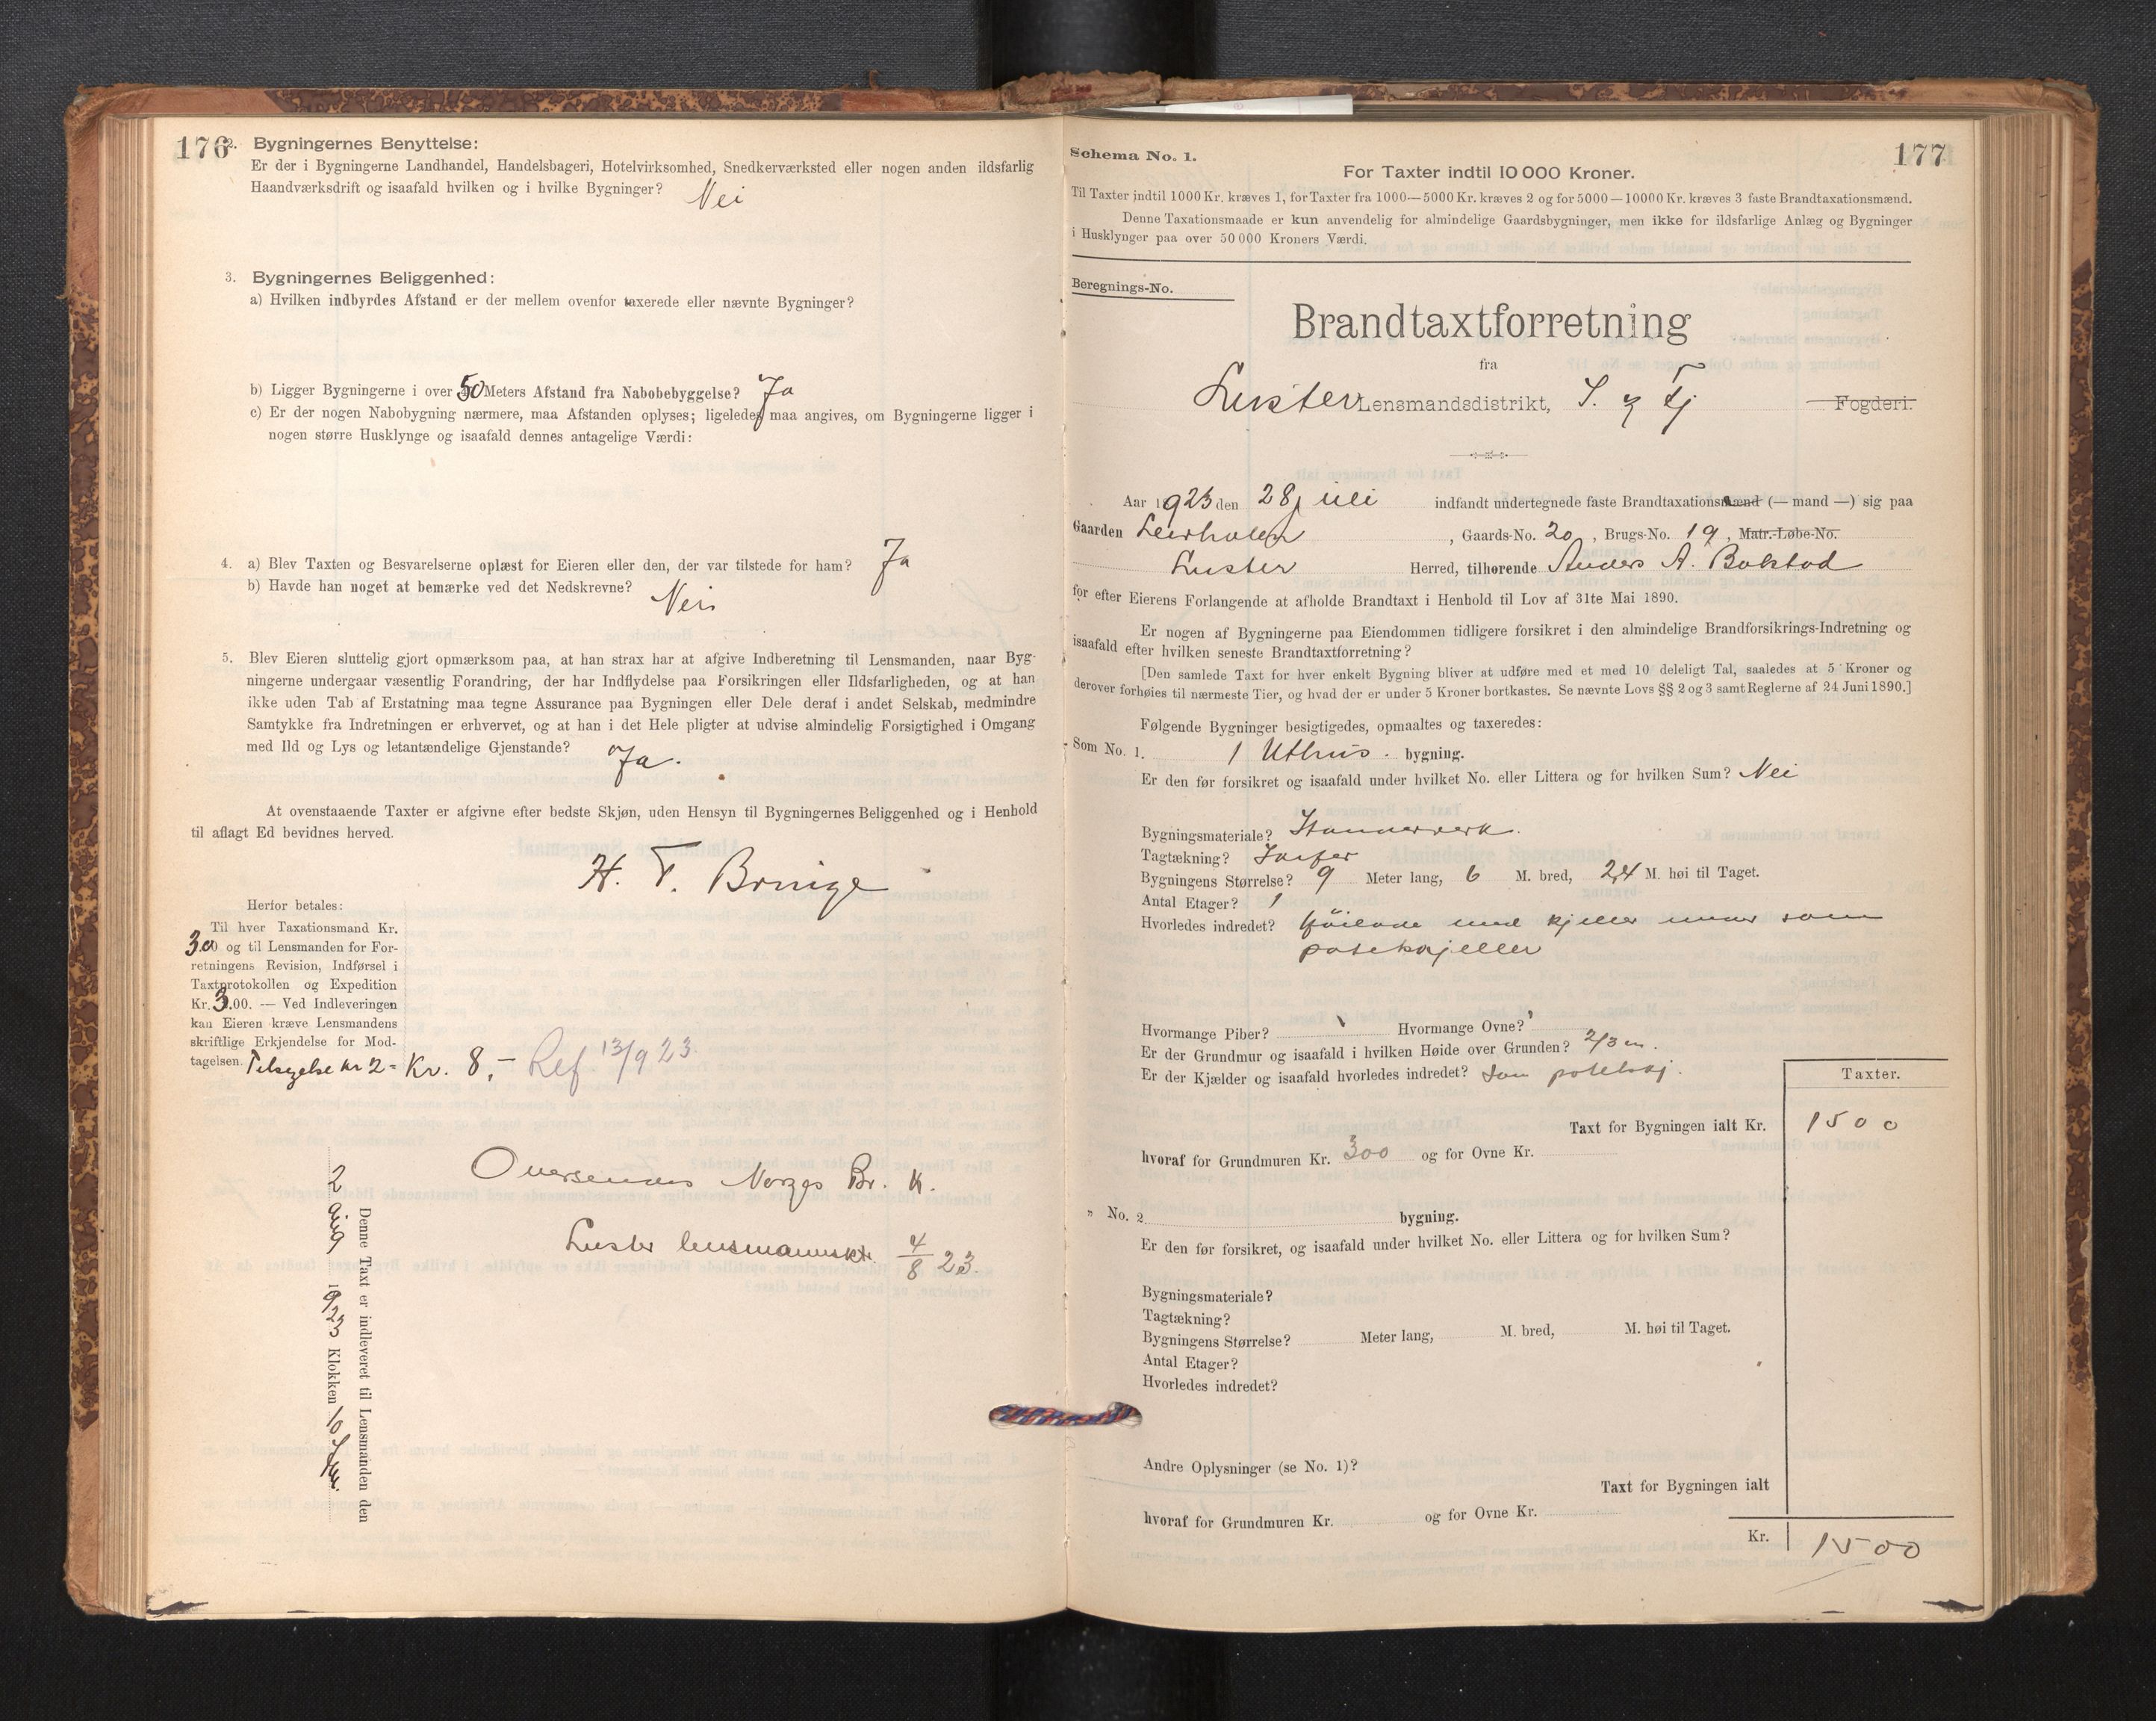 176
2. Bygningernes Benyttelse:
Er der i Bygningerne Landhandel, Handelsbageri, Hotelvirksomhed, Snedkerværksted eller nogen anden ildsfarlig
Haandværksdrift og isaafald hvilken og i hvilke Bygninger? Nei
3. Bygningernes Beliggenhed:
a) Hvilken indbyrdes Afstand er der mellem ovenfor taxerede eller nævnte Bygninger?
b) Ligger Bygningerne i over 50 Meters Afstand fra Nabobebyggelse? Ja
c) Er der nogen Nabobygning nærmere, maa Afstanden oplyses; ligeledes maa angives, om Bygningerne ligger i
nogen større Husklynge og isaafald dennes antagelige Værdi:
4. a) Blev Taxten og Besvarelserne oplæst for Eieren eller den, der var tilstede for ham? Ja
b) Havde han noget at bemærke ved det Nedskrevne? Nei
5. Blev Eieren sluttelig gjort opmærksom paa, at han strax har at afgive Indberetning til Lensmanden, naar Byg-
ningerne undergaar væsentlig Forandring, der har Indflydelse paa Forsikringen eller Ildsfarligheden, og at han
ikke uden Tab af Erstatning maa tegne Assurance paa Bygningen eller Dele deraf i andet Selskab, medmindre
Samtykke fra Indretningen er erhvervet, og at han i det Hele pligter at udvise almindelig Forsigtighed i Omgang
med Ild og Lys og letantændelige Gjenstande? Ja.
At ovenstaaende Taxter er afgivne efter bedste Skjøn, uden Hensyn til Bygningernes Beliggenhed og i Henhold
til aflagt Ed bevidnes herved.
H. T. Bringe
Herfor betales:
Til hver Taxationsmand Kr.
3.00 og til Lensmanden for For-
retningens Revision, Indførsel i
Taxtprotokollen og Expedition
Kr. 3.00. — Ved Indleveringen
kan Eieren kræve Lensmandens
skriftlige Erkjendelse for Mod-
tagelsen. kr 2 = Kr. 8,- Ref. 13/9 23
Oversendes Norges Br. K.
Luster lensmannskt. 4/8 23.
Denne Taxt er indleveret til Lensmanden den
2 aug 1923 Klokken 10
177
Schema No. 1.
For Taxter indtil 10 000 Kroner.
Til Taxter indtil 1000 Kr. kræves 1, for Taxter fra 1000—5000 Kr. kræves 2 og for 5000—10000 Kr. kræves 3 faste Brandtaxationsmænd.
Denne Taxationsmaade er kun anvendelig for almindelige Gaardsbygninger, men ikke for ildsfarlige Anlæg og Bygninger
i Husklynger paa over 50 000 Kroners Værdi.
Beregnings-No.
Brandtaxtforretning
fra
Luster Lensmandsdistrikt, S. og Fj Fogderi.
Aar 1923 den 28 juli indfandt undertegnede faste Brandtaxationsmænd (— mand —) sig paa
Gaarden , Gaards-No. 20 , Brugs-No. 19 , Matr.-Løbe-No.
Luster Herred, tilhørende Anders A. Bolstad
for efter Eierens Forlangende at afholde Brandtaxt i Henhold til Lov af 31te Mai 1890.
Er nogen af Bygningerne paa Eiendommen tidligere forsikret i den almindelige Brandforsikrings-Indretning og
isaafald efter hvilken seneste Brandtaxtforretning?
[Den samlede Taxt for hver enkelt Bygning bliver at udføre med et med 10 deleligt Tal, saaledes at 5 Kroner og
derover forhøies til nærmeste Tier, og hvad der er under 5 Kroner bortkastes. Se nævnte Lovs §§ 2 og 3 samt Reglerne af 24 Juni 1890.]
Følgende Bygninger besigtigedes, opmaaltes og taxeredes:
Som No. 1. 1 Uthus. bygning.
Er den før forsikret og isaafald under hvilket No. eller Littera og for hvilken Sum? Nei
Bygningsmateriale? Stenderverk.
Tagtækning?
Bygningens Størrelse? 9 Meter lang, 6 M. bred, 2,4 M. høi til Taget.
Antal Etager? 1
Hvorledes indredet? med kjeller under som
potetkjeller
Hvormange Piber? Hvormange Ovne?
Er der Grundmur og isaafald i hvilken Høide over Grunden? 2/3 m.
Er der Kjælder og isaafald hvorledes indredet? Som potetkj.
Taxter.
Taxt for Bygningen ialt Kr. 1500
hvoraf for Grundmuren Kr. 300 og for Ovne Kr.
" No. 2 bygning.
Er den før forsikret, og isaafald under hvilket No. eller Littera og for hvilken Sum?
Bygningsmateriale?
Tagtækning?
Bygningens Størrelse? Meter lang, M. bred, M. høi til Taget.
Antal Etager?
Hvorledes indredet?
Andre Oplysninger (se No. 1)?
Taxt for Bygningen ialt
hvoraf for Grundmuren Kr. og for Ovne Kr.
Kr. 1500